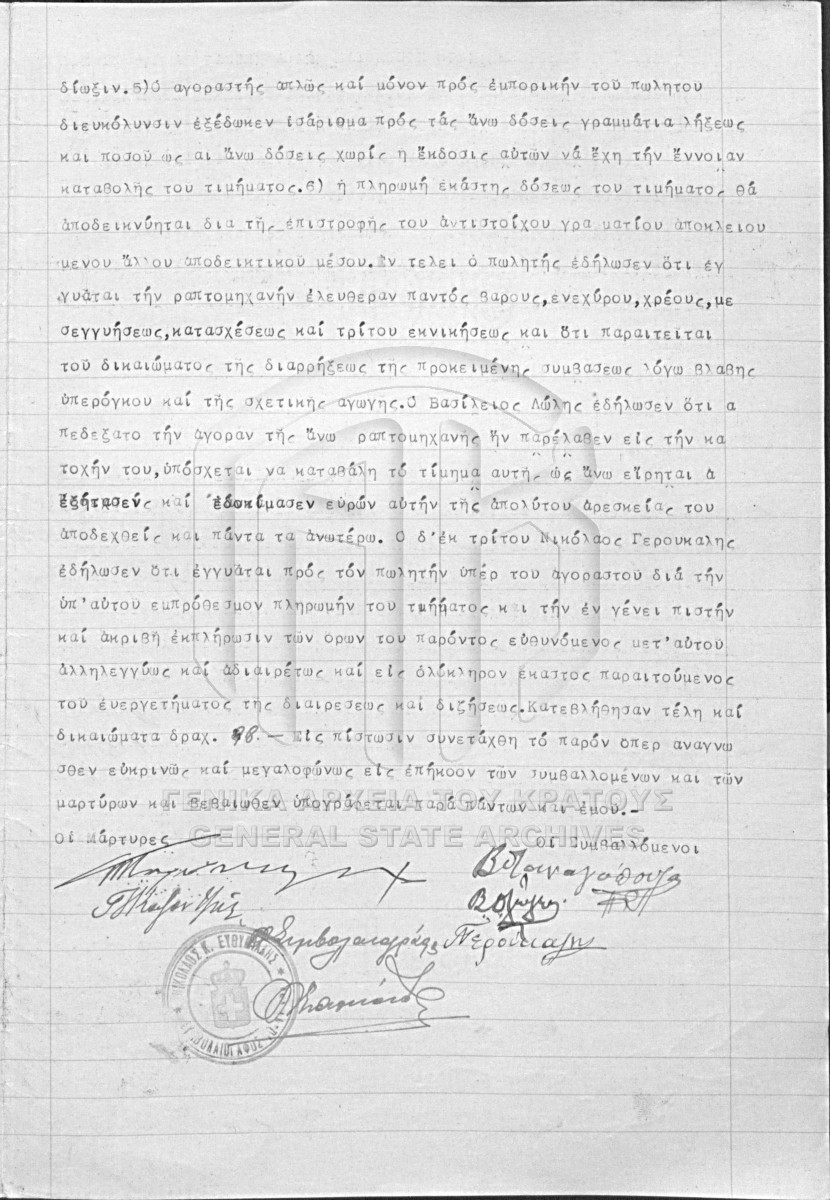 δίωξιν.5)Ο αγοραστής απλῶς καί μόνον πρός ἐμπορικήν τοῦ πωλητου
διευκόλυνσιν ἐξέδωκεν ἰσάριθμα πρός τάς ἄνω δόσεις γραμμάτια λήξεως
και ποσοῦ ὡς αι ἄνω δόσεις χωρίς η ἔκδοσις αὐτῶν νά ἔχη τήν ἔννοιαν
καταβολῆς του τιμήματος.6) ἡ πληρωμή ἑκάστης δόσεως του τιμήματος θά
ἀποδεικνύηται δια τῆς ἐπιστροφῆς του ἀντιστοίχου γρα ματίου ἀποκλειου
μενου ἄλλου αποδεικτικοῦ μέσου.Εν τελει ὁ πωλητής ἐδήλωσεν ὅτι ἐγ
γυᾶται τήν ραπτομηχανήν ἐλευθεραν παντός βαρους,ενεχύρου,χρέους,με
σεγγυήσεως,κατασχέσεως καί τρίτου εκνικήσεως και ὅτι παραιτεῖται
τοῦ δικαιώματος τῆς διαρρήξεως τῆς προκειμένης συμβασεως λόγω βλαβης
ὑπερόγκου καί τῆς σχετικῆς αγωγης.Ο Βασίλειος Λώλης ἐδήλωσεν ὅτι α
πεδεξατο τήν ἀγοραν τῆς ἄνω ραπτομηχανῆς ἥν παρέλαβεν εἰς τήν κα
τοχήν του,ὑπόσχεται να καταβάλη τό τίμημα αυτῆς ὡς ἄνω εἴρηται ἀ
ἐξήτασεν καί ἐδοκίμασεν εὑρών αὐτήν τῆς ἀπολύτου ἀρεσκείας του
ἀποδεχθείς και πάντα τα ἀνωτέρω. Ο δ'ἐκ τρίτου Νικόλαος Γερουκαλης
ἐδήλωσεν ὅτι ἐγγυᾶται πρός τόν πωλητήν ὑπέρ του αγοραστοῦ διά τήν
ὑπ'αὐτου εμπρόθεσμον πληρωμήν του τμήματος κ ι τήν ἐν γένει πιστήν
καί ἀκριβῆ ἐκπλήρωσιν τῶν ὅρων του παρόντος εὐθυνόμενος μετ'αὐτοῦ
ἀλληλεγγύως καί ἀδιαιρέτως καί εἰς ὁλόκληρον ἕκαστος παραιτούμενος
τοῦ ευεργετήματος τῆς διαιρεσεως καί διζήσεως.Κατεβλήθησαν τέλη καί
δικαιώματα δραχ. 98.— Εἰς πίστωσιν συνετάχθη τό παρόν ὅπερ αναγνω
σθεν εὐκρινῶς καί μεγαλοφώνως εἰς ἐπήκοον τῶν συμβαλλομένων και τῶν
μαρτύρων και βεβαιωθεν ὑπογράφεται παρά πάντων και ἐμου.—
ΓΕΝΙΚΑ ΑΡΧΕΙΑ ΤΟΥ ΚΡΑΤΟΥΣ
GENERAL STATE ARCHIVES
Οἱ Μάρτυρες
Οἱ Συμβαλλόμενοι
Ο Συμβολαιογράφος